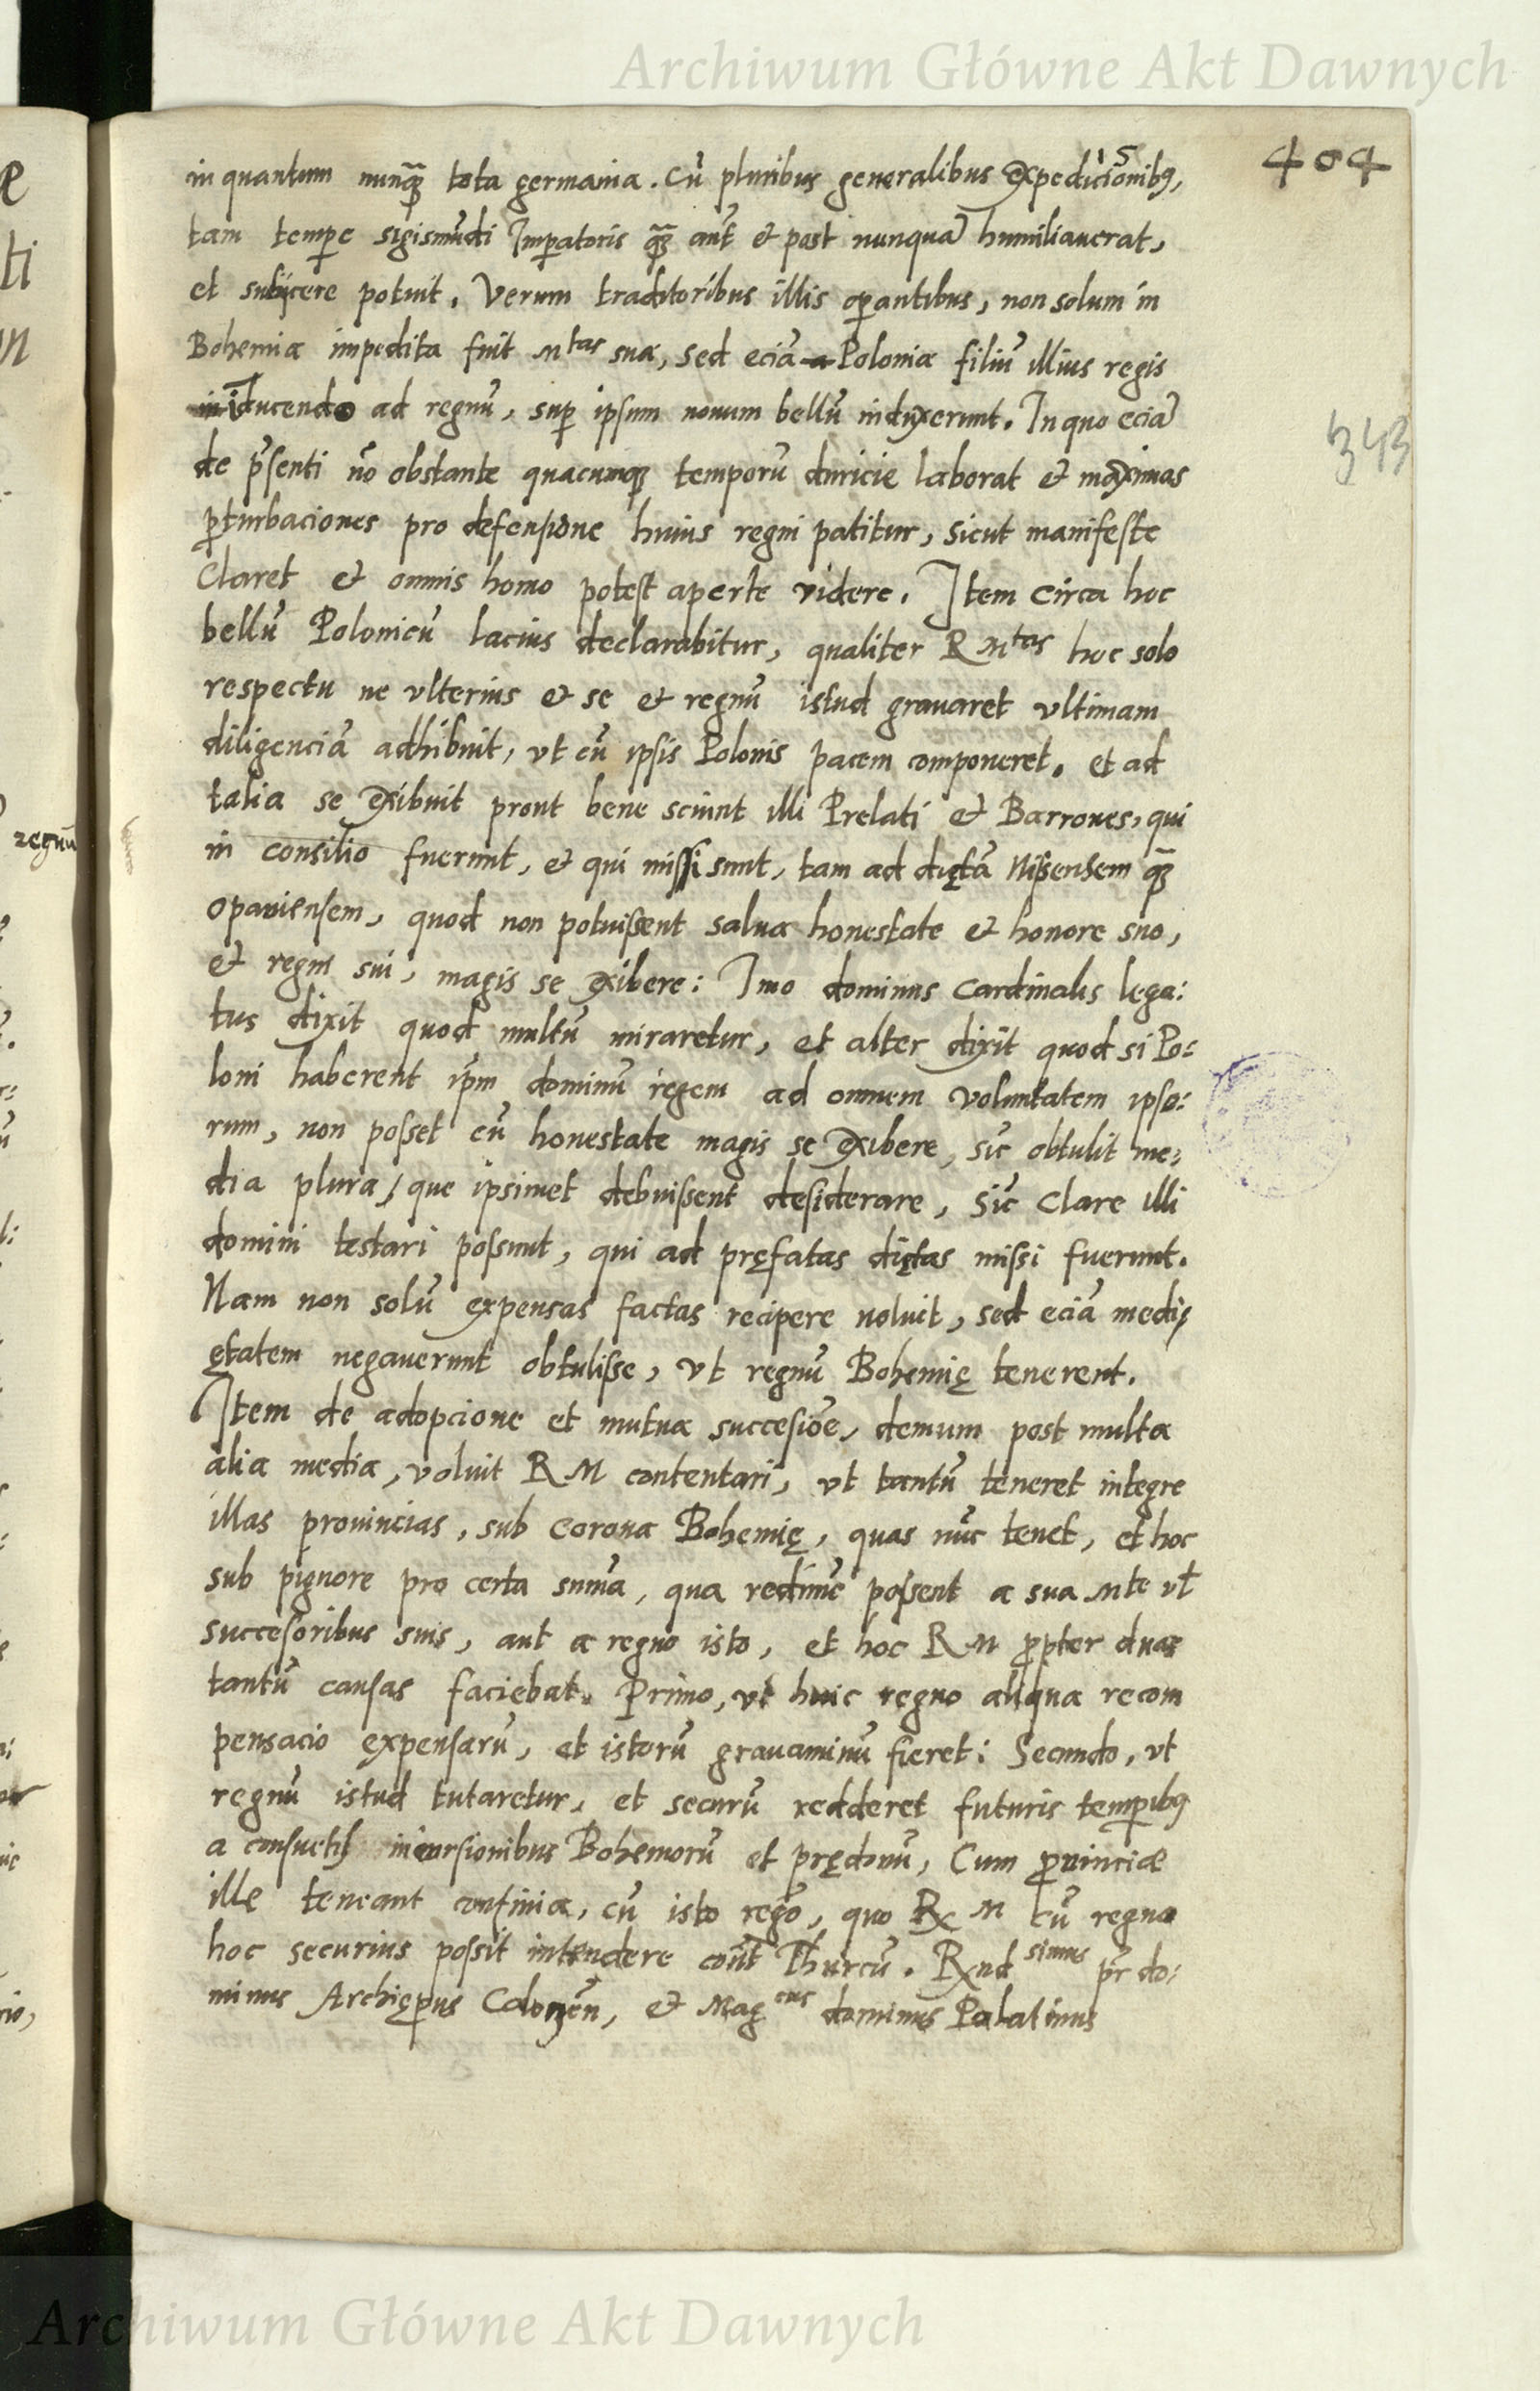 Archiwum Główne Akt Dawnych
404
in quantum nunq̃ȝ tota germania. Cũ pluribus generalibus expedicionibꝯ,
tam tempe sigismũdi Imperatoris q̃ȝ añt et post nunquã humiliauerat,
et subijcere potuit. Verum traditoribus illis operantibus, non solum in
Bohemia impedita fuit Mtas sua, sed eciã Polonia filiũ illius regis
inducendo ad regnũ, sup ipsum nouum bellũ induxerunt. In quo eciã
de p̃senti nõ obstante quacunqȝ temporũ duricie laborat et maximas
ꝑturbaciones pro defensione huius regni patitur, sicut manifeste
Claret et omnis homo potest aperte videre. Item circa hoc
bellũ Polonicũ lacius declarabitur, qualiter R Mtas hoc solo
respectu ne vlterius et se et regnũ istud grauaret vltimam
diligenciã adhibuit, vt cũ ipsis Polonis pacem componeret. et ad
talia se exibuit prout bene sciunt illi Prelati et Barrones, qui
in consilio fuerunt, et qui missi sunt, tam ad dietã Nissensem q̃ȝ
opauiensem, quod non potuissent salua honestate et honore suo,
et regni sui, magis se exibere: Imo dominus Cardinalis lega:
tus dixit quod multũ miraretur, et alter dixit quod si Po:
loni haberent ip̃m dominũ regem ad omnem voluntatem ipso:
rum, non posset cũ honestate magis se exibere, sic obtulit me:
dia plura, que ipsimet debuissent desiderare, sic Clare illi
domini testari possunt, qui ad pręfatas dietas missi fuerunt.
Nam non solũ expensas factas recipere noluit, sed eciã medi
ętatem negauerunt obtulisse, vt regnũ Bohemię tenerent.
Item de adopcione et mutua succesiõe, demum post multa
alia media, voluit R M contentari, vt tantũ teneret integre
illas prouincias, sub corona Bohemię, quas nũc tenet, et hoc
sub pignore pro certa sum̃a, qua redim̃e possent a sua Mte vl̃
succesoribus suis, aut a regno isto, et hoc R M ꝓpter duas
tantũ causas faciebat. Primo, vt huic regno aliqua recom
pensacio expensarũ, et istorũ grauaminũ fieret: Secundo, vt
regnũ istud tutaretur, et securũ redderet futuris temporibꝯ
a consuetis incursionibus Bohemorũ et prędonũ, Cum ꝓuinciæ
illę teneant confinia, cũ isto regõ, quo Rx M cũ regno
hoc securius possit intendere cont̃ Thurcũ. Rxnd simus pr̃ do:
minus Archięp̃us Coloceñ, et Mag cus dominus Palatinus
343
regnũ
Archiwum Główne Akt Dawnych